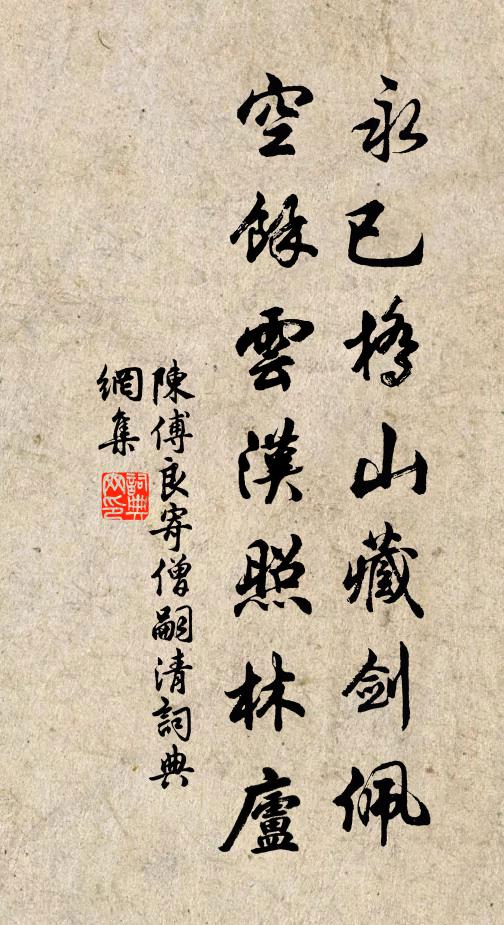 永已橋山藏劍佩
空餘雲漢照林廬
陳傅良寄僧嗣清詞典
網集
詞典
網印